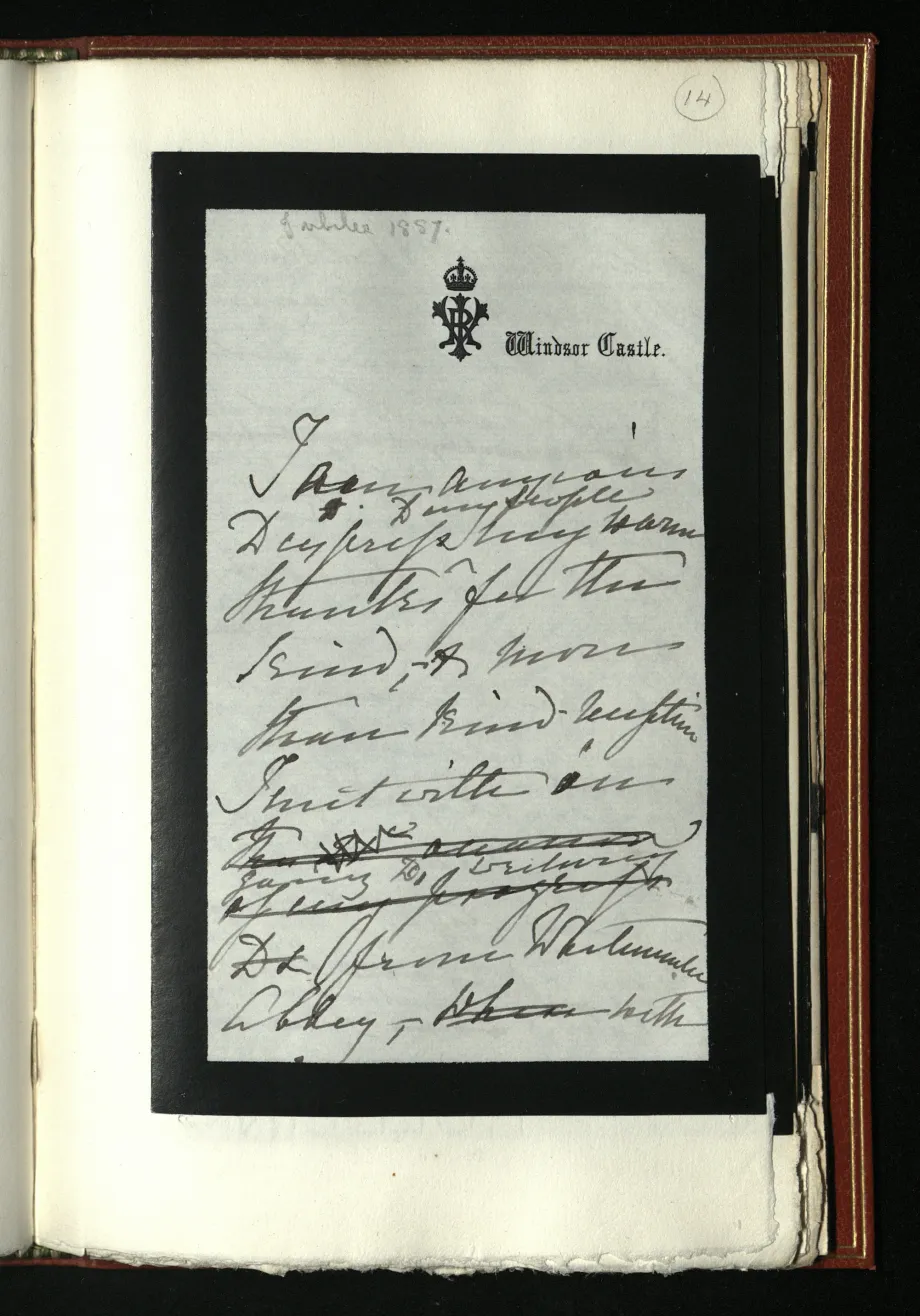 14
Jubilee 1887.
VRI
Windsor Castle.
I am anxious
to my people
to express my warm
thanks for the
kind, & more
than kind reception
I met with on
the occasion
going to & returning
of my progress
to & from Westminster
Abbey, – when with